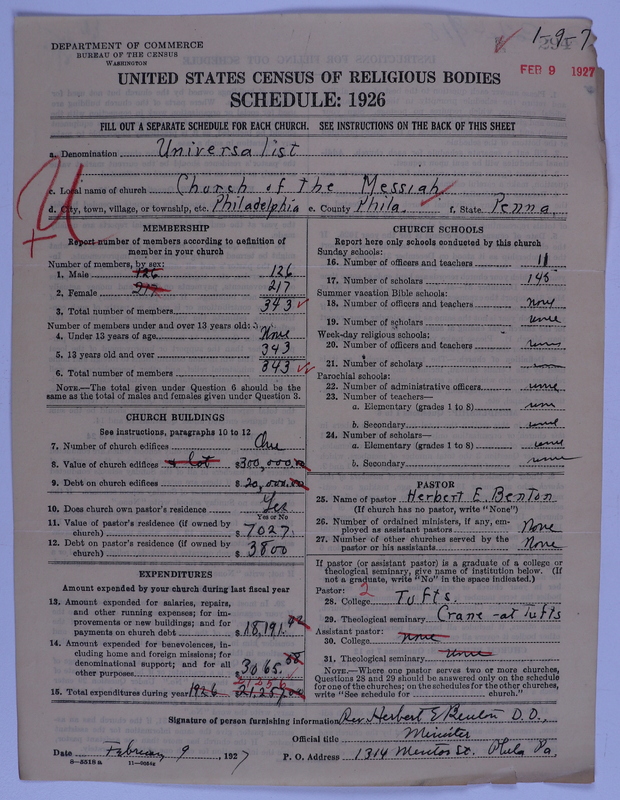 1-9-7
DEPARTMENT OF COMMERCE
BUREAU OF THE CENSUS
WASHINGTON
FEB 9 1927
UNITED STATES CENSUS OF RELIGIOUS BODIES
SCHEDULE: 1926
FILL OUT A SEPARATE SCHEDULE FOR EACH CHURCH. SEE INSTRUCTIONS ON THE BACK OF THIS SHEET
a. Denomination Universalist
c. Local name of church Church of the Messiah
d. City, town, village, or township, etc. Philadelphia e. County Phila. f. State Penna.
MEMBERSHIP
Report number of members according to definition of
member in your church
Number of members, by sex:
1. Male 126 126
2. Female 217 217
3. Total number of members 343
Number of members under and over 13 years old:
4. Under 13 years of age None
5. 13 years old and over 343
6. Total number of members 343
NOTE.—The total given under Question 6 should be the
same as the total of males and females given under Question 3.
CHURCH BUILDINGS
See instructions, paragraphs 10 to 12
7. Number of church edifices One
8. Value of church edifices & lot $300,000.00
9. Debt on church edifices $20,000.00
10. Does church own pastor's residence Yes
Yes or No
11. Value of pastor's residence (if owned by
church) $7027
12. Debt on pastor's residence (if owned by
church) $3800
EXPENDITURES
Amount expended by your church during last fiscal year
13. Amount expended for salaries, repairs,
and other running expenses; for im-
provements or new buildings; and for
payments on church debt $18,191.42
14. Amount expended for benevolences, in-
cluding home and foreign missions; for
denominational support; and for all
other purposes $3065.58
21,256
15. Total expenditures during year 1926 21,257.00
CHURCH SCHOOLS
Report here only schools conducted by this church
Sunday schools:
16. Number of officers and teachers 11
17. Number of scholars 145
Summer vacation Bible schools:
18. Number of officers and teachers none
19. Number of scholars none
Week-day religious schools:
20. Number of officers and teachers none
21. Number of scholars none
Parochial schools:
22. Number of administrative officers none
23. Number of teachers—
a. Elementary (grades 1 to 8) none
b. Secondary none
24. Number of scholars—
a. Elementary (grades 1 to 8) none
b. Secondary none
PASTOR
25. Name of pastor Herbert E. Benton
(If church has no pastor, write "None")
26. Number of ordained ministers, if any, em-
ployed as assistant pastors None
27. Number of other churches served by the
pastor or his assistants None
If pastor (or assistant pastor) is a graduate of a college or
theological seminary, give name of institution below. (If
not a graduate, write "No" in the space indicated.)
Pastor: 2
28. College Tufts.
29. Theological seminary Crane - at Tufts
Assistant pastor:
30. College none
31. Theological seminary none
NOTE.—Where one pastor serves two or more churches,
Questions 28 and 29 should be answered only on the schedule
for one of the churches; on the schedules for the other churches,
write "See schedule for church."
Signature of person furnishing information Rev. Herbert E Benton D.D.
Official title Minister
Date February 9, 1927 P. O. Address 1314 Mentor St. Phila Pa.
8-5518a 11-9054a